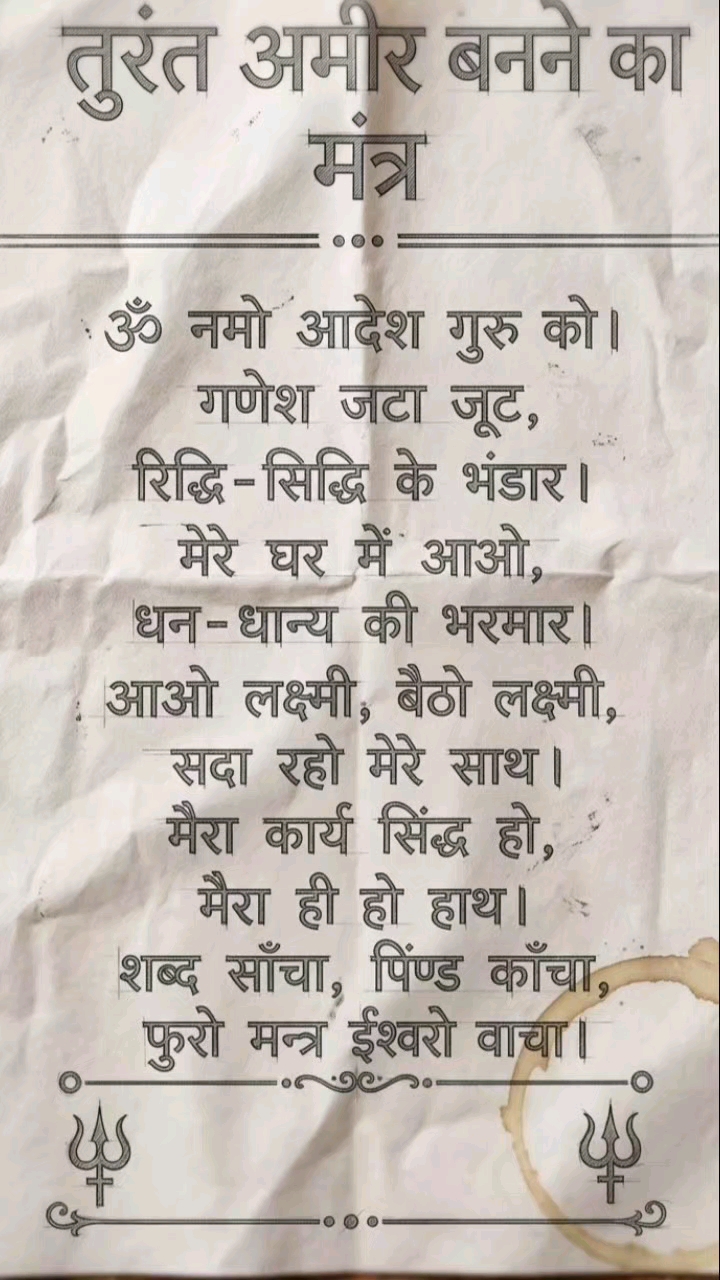 तुरंत अमीर बनने का
मंत्र
ॐ नमो आदेश गुरु को।
गणेश जटा जूट,
रिद्धि-सिद्धि के भंडार।
मेरे घर में आओ,
धन-धान्य की भरमार।
आओ लक्ष्मी, बैठो लक्ष्मी,
सदा रहो मेरे साथ।
मैरा कार्य सिंद्ध हो,
मैरा ही हो हाथ।
शब्द साँचा, पिंण्ड काँचा,
फुरो मन्त्र ईश्वरो वाचा।